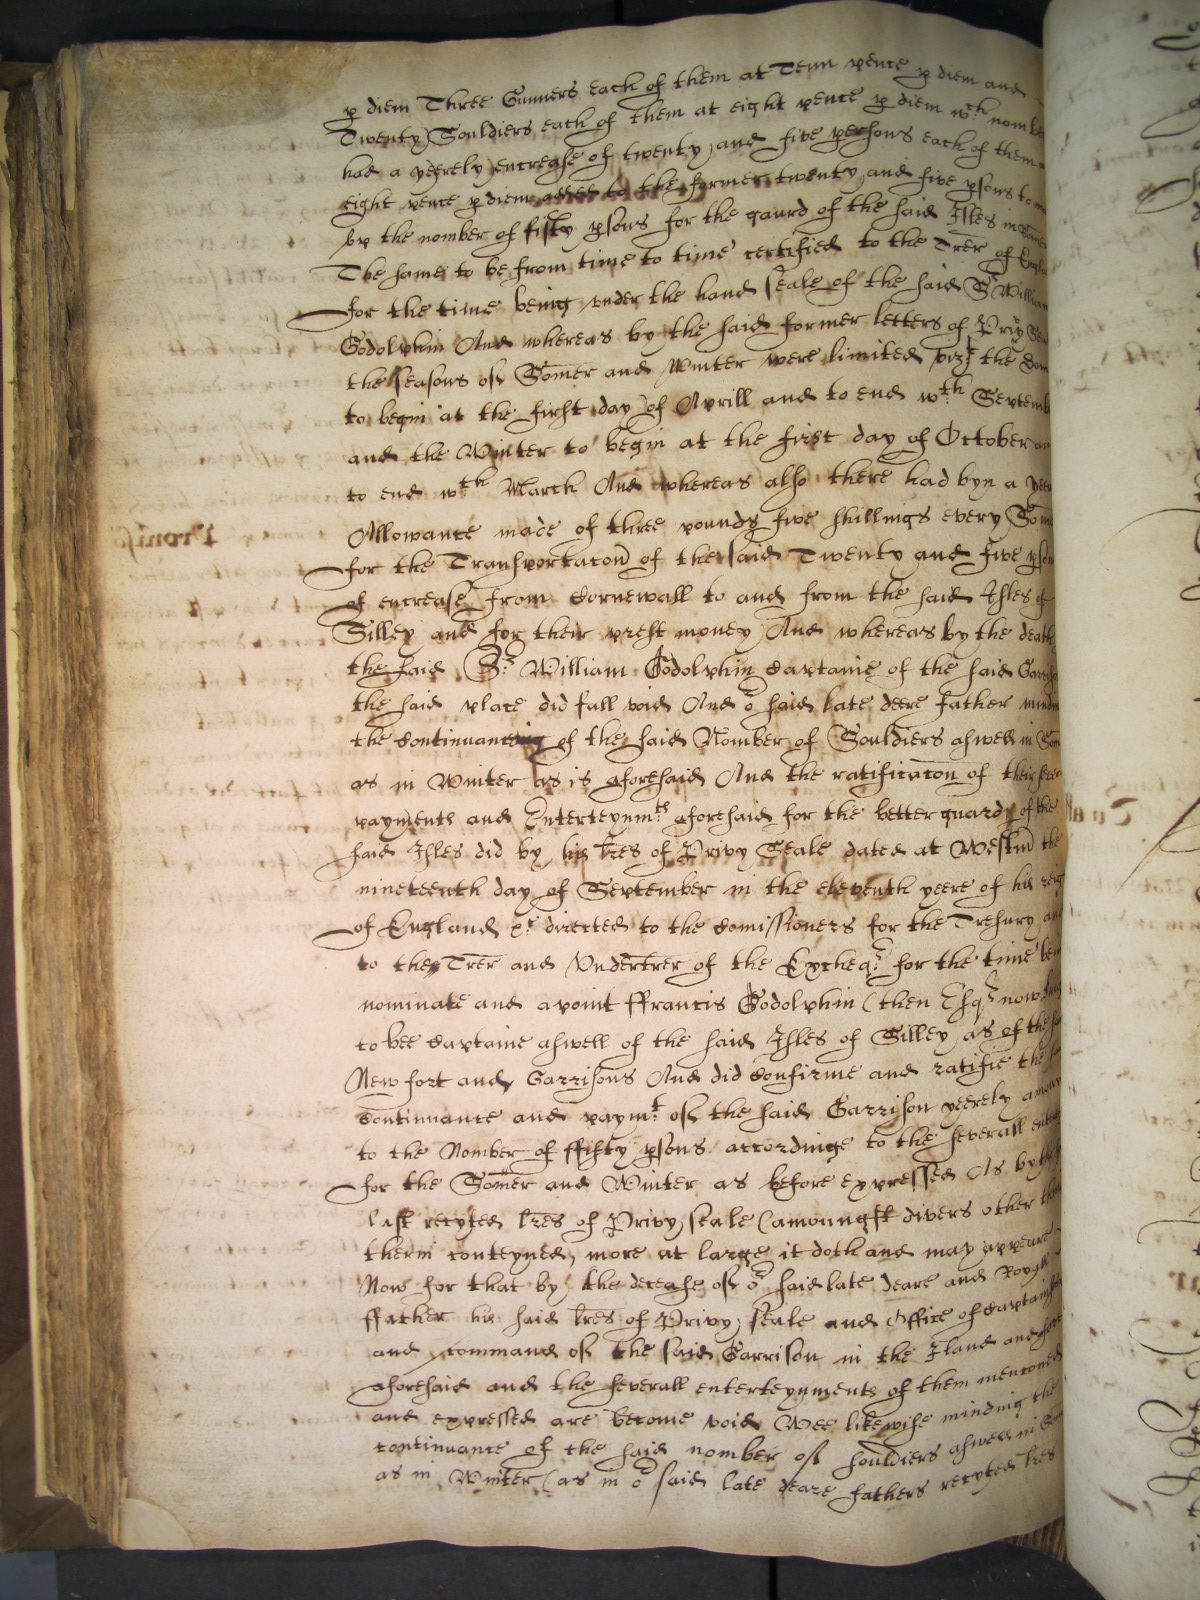 p diem Three Gunners each of them at Tenn pence p diem and
Twenty Souldiers each of them at eight pence p diem wch nomb
had a yeerely encrease of twenty and five persons each of them
eight pence p diem added to the former twenty and five psons to
by the nomber of fifty psons for the gaurd of the said Isles in
The same to be from time to time certified to the Trer of
for the time being vnder the hand seale of the said Sr Willia
Godolphin And whereas by the said former letters of Privy
the seasons of Somer and Winter were limited vizt the Som
to begin at the first day of Aprill and to end wth Septemb
and the Winter to begin at the first day of October an
to end wth March And whereas also there had byn a yeer
Allowance made of three pounds five shillings every Som
for the Transportacon of the said Twenty and five pson
of encrease from Cornewall to and from the said Isles of
Silley and for their prest money And whereas by the death
the said Sr William Godolphin Captaine of the said Garri
the said place did fall void And or said late deere father mind
the Continuance of the said Nomber of Souldiers aswell in Som
as in Winter as is aforesaid And the ratificacon of their
payments and Enterteynmts aforesaid for the better guard of the
said Isles did by his lres of Privy Seale dated at Westm the
nineteenth day of September in the eleventh yeere of his reig
of England &c directed to the Comissioners for the Tresury an
to the Trer and Vndertrer of the Excheqr for the time bein
nominate and apoint ffrancis Godolphin (then Esqr now
to bee Captaine aswell of the said Isles of Silley as of the
New fort and Garrisons And did Confirme and ratifie the
Continuance and paymt of the said Garrison yeerely
to the Nomber of ffifty psons accordinge to the severall
for the Somer and Winter as before expressed As by
last recyted lres of Privy seale (amoungst divers other
therin conteyned, more at large it doth and may appeare
Now for that by the decease of or said late deare and Royall
ffather his said lres of Privy seale and Office of Captain
and command of the said Garrison in the Iland and
aforesaid and the severall enterteynments of them mencioned
and expressed are become void Wee likewise minding the
continuance of the said nomber of souldiers aswell in
as in Winter (as in or said late deare fathers recyted lres